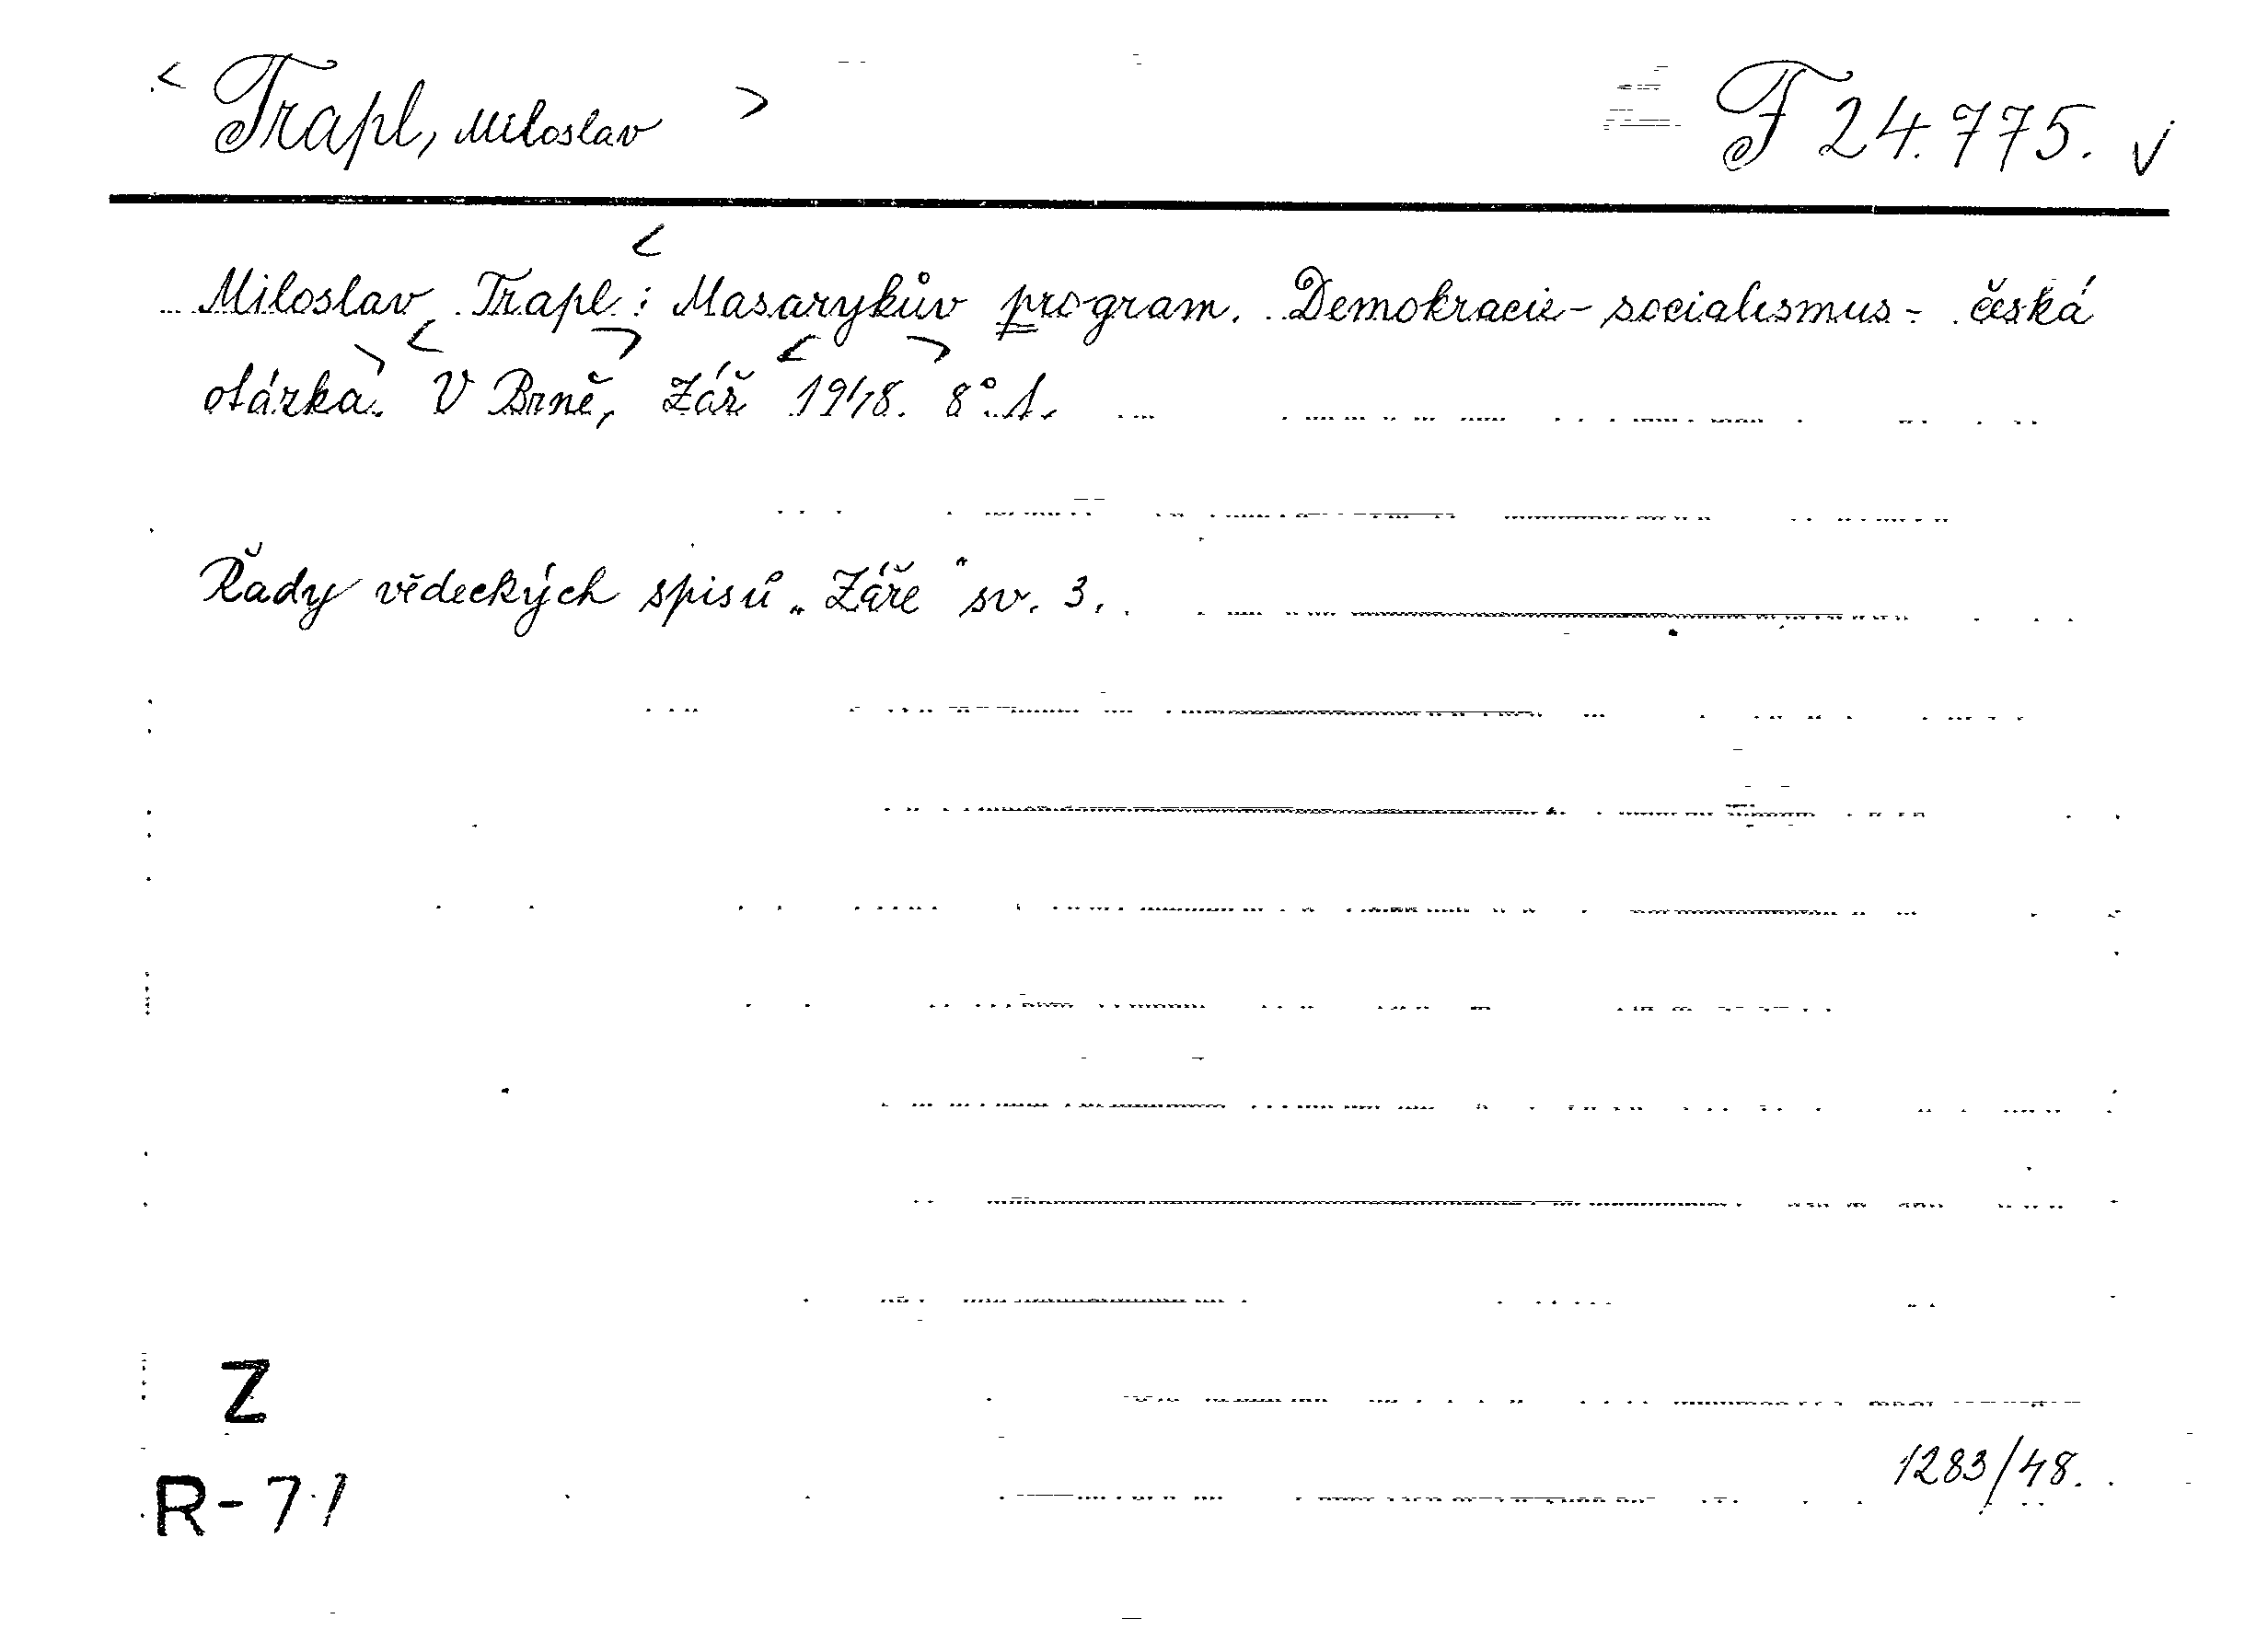 < Trapl, Miloslav > F 24.775. v
Miloslav Trapl: < Masarykův program. Demokracie - socialismus - česká
otázka. > < V Brně, > Zář < 1948. > 8°. 1.
Řady vědeckých spisů „Záře" sv. 3.
Z
1283/48.
R-71